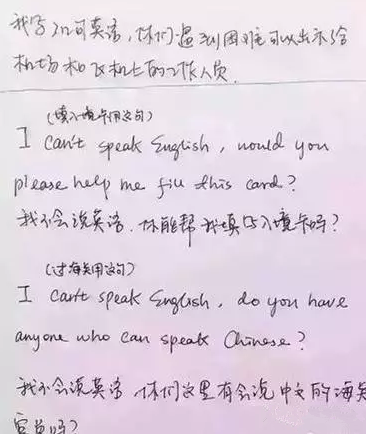 我写了几句英语,你们遇到困难可以出示给
机场和飞机上的工作人员.
(填入境卡用这句)
I can't speak English, would you
please help me fill this card?
我不会说英语.你能帮我填写入境卡吗?
(过海关用这句)
I can't speak English, do you have
anyone who can speak Chinese?
我不会说英语 你们这里有会说中文的海关
官员吗?